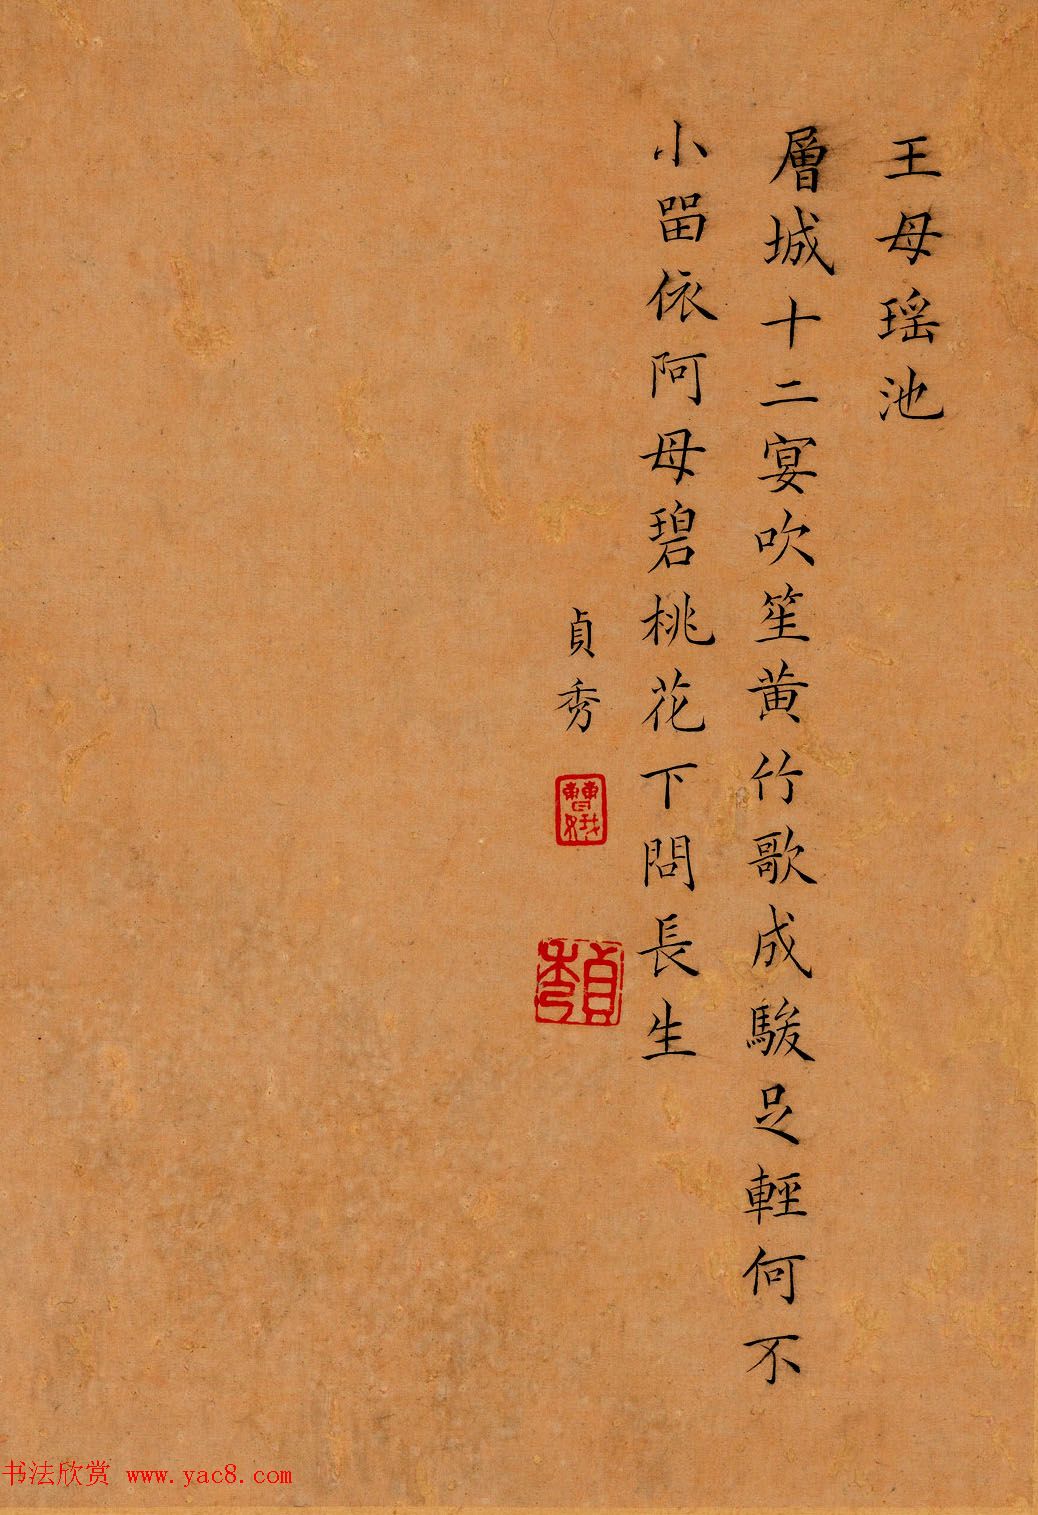 王母瑶池
層城十二宴吹笙黄竹歌成駿足輕何不
小畱依阿母碧桃花下問長生
貞秀
曹娥
貞秀
书法欣赏 www.yac8.com